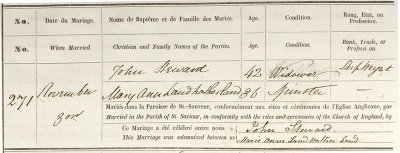 No. Date du Mariage. Noms de Baptême et de Famille des Mariés. Age. Condition. Rang, Etat, ou Profession.
No. When Married. Christian and Family Names of the Parties. Age. Condition. Rank, Trade, or Profession.
John Steward 42 Widower
271 November Mary Ann 36 Spinster
3rd
Mariés dans la Paroisse de St.-Sauveur, conformément aux rites et cérémonies de l'Eglise Anglicane, par
Married in the Parish of St. Saviour, in conformity with the rites and ceremonies of the Church of England, by
Ce Mariage a été célébré entre nous
This Marriage was solemnized between us
John Steward
Land